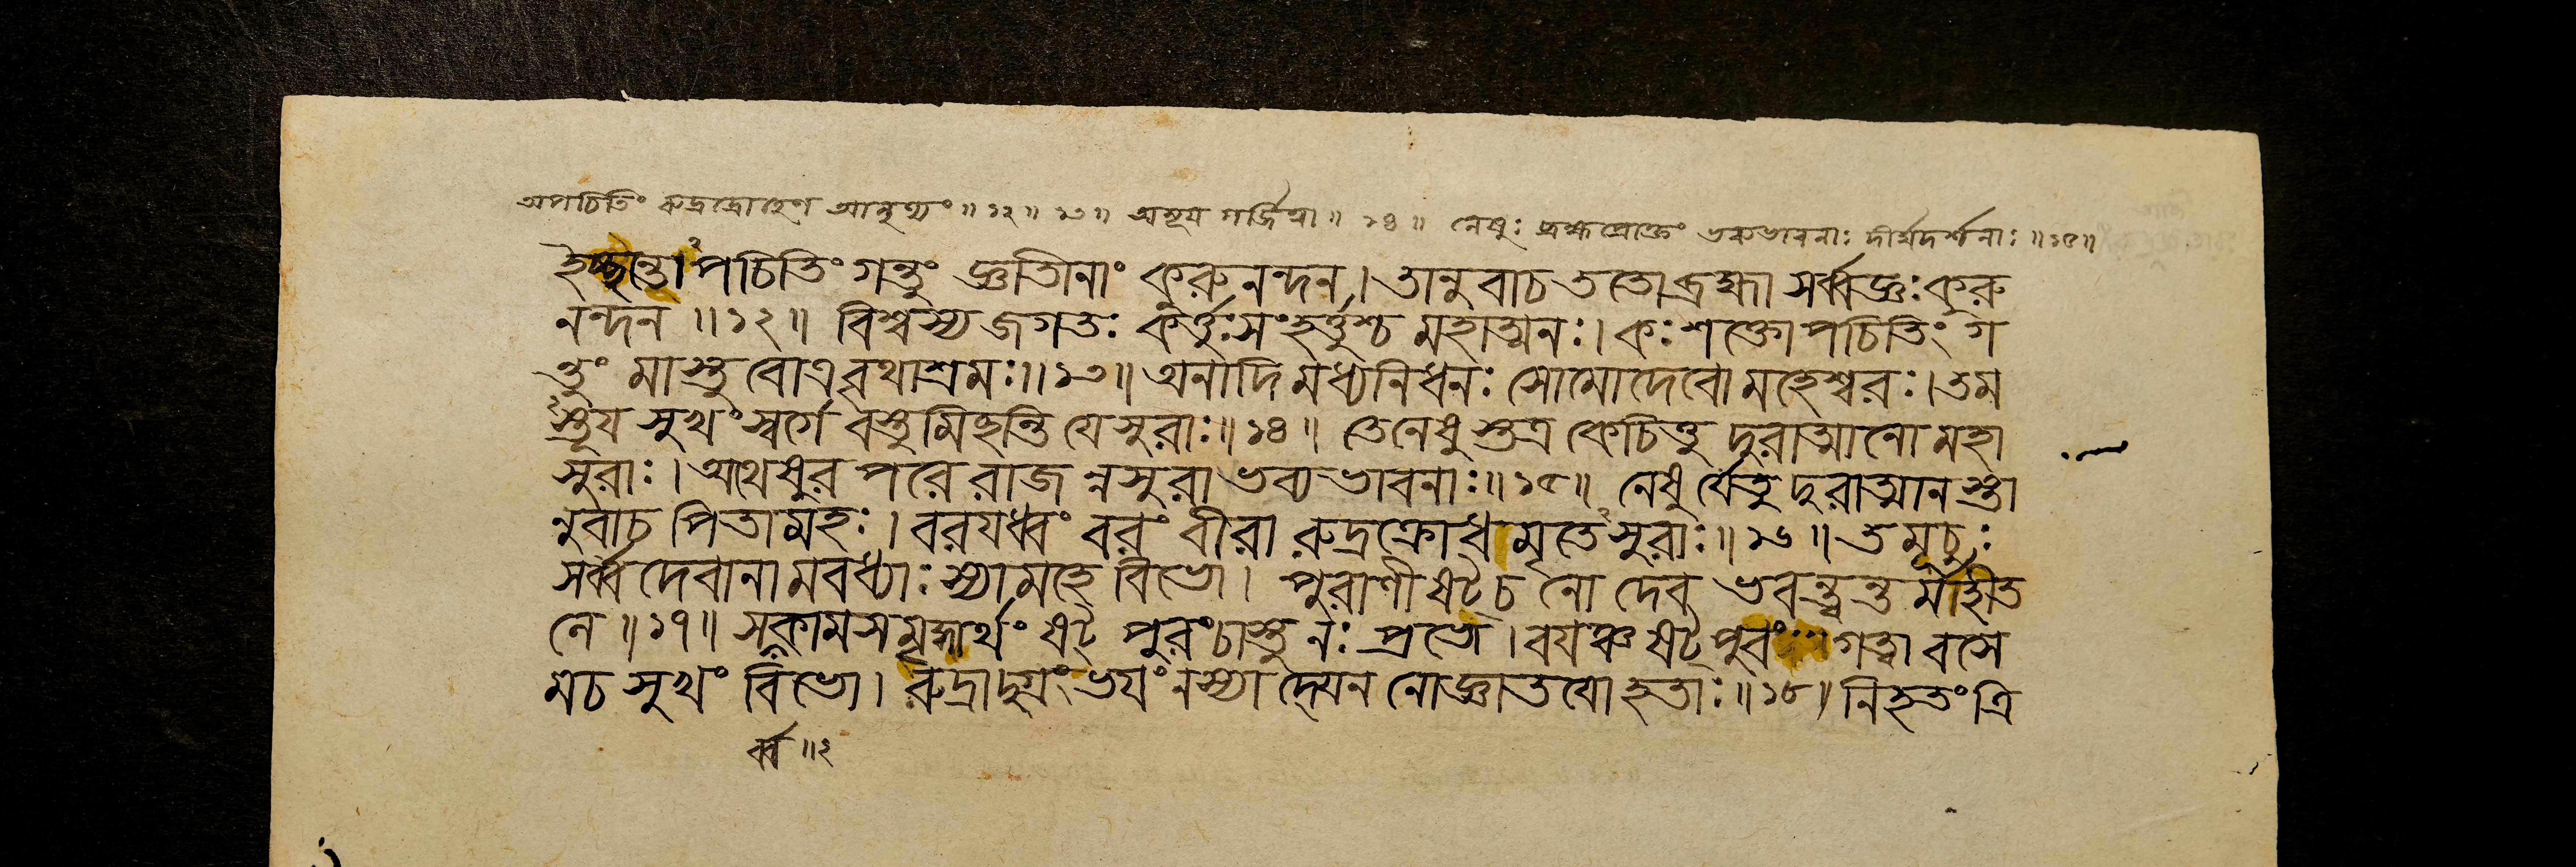 অপচিতিং রুদ্রদ্রোহেণ আনৃণ্যং ॥ ১২ ॥ ১৩ ॥ অসূয গর্জিত্বা ॥ ১৪ ॥ নেষুঃ ব্রহ্মপ্রোক্তং ভব্যভাবনাঃ দীর্ঘদর্শনাঃ ॥ ১৫ ॥
ইচ্ছন্তোপচিতিং গন্তুং জ্ঞাতীনাং কুরুনন্দন । তানুবাচ ততো ব্রহ্মা সর্ব্বজ্ঞঃ কুরু
নন্দন ॥ ১২ ॥ বিশ্বস্য জগতঃ কর্ত্তুঃ সংহর্ত্তুশ্চ মহাত্মনঃ । কঃ শক্তোপচিতিং গ
ন্তুং মাস্তু বোত্র বৃথাশ্রমঃ ॥ ১৩ ॥ অনাদিমধ্যনিধনঃ সোমো দেবো মহেশ্বরঃ । তম
সূয সুখং স্বর্গে বস্তুমিছন্তি যে সুরাঃ ॥ ১৪ ॥ তে নেষুস্তত্র কেচিত্তু দুরাত্মানো মহা
সুরাঃ । অথেষুরপরে রাজন্নসুরা ভব্যভাবনাঃ ॥ ১৫ ॥ নেষুর্যেতু দুরাত্মানস্তা
নুবাচ পিতামহঃ । বরযধ্বং বরং বীরা রুদ্রক্রোধমৃতেসুরাঃ ॥ ১৬ ॥ তমূচুঃ
সর্ব্বদেবানামবধ্যাঃ স্যামহে বিভো । পুরাণী ষট্ চ নো দেব ভবন্ত্বন্তর্মহীত
লে ॥ ১৭ ॥ সকামসমৃদ্ধার্থং ষট্ পুরং চাস্তু নঃ প্রভো । বযঞ্চ ষট্পুরং গত্বা বসে
মচ সুখং বিভো । রুদ্রাদুগ্রং ভযং নস্যাদ্যেন নো জ্ঞাতযো হতাঃ ॥ ১৮ ॥ নিহতং ত্রি
র্ব্ব ॥ ২